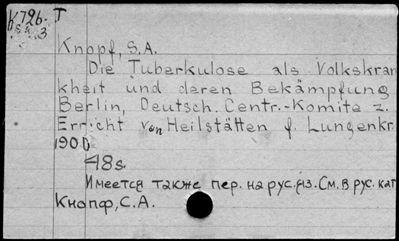 K796. T
3
Knopf, S.A.
Die Tuberkulose als Volkskran
kheit und deren Bekämpfung
Berlin, Deutsch. Centr.-Komite z.
Erricht von Heilstätten f. Lungenkr.
1900
48s.
Имеется также пер. на рус. яз. См. в рус. кат
Кнопф, С.А.